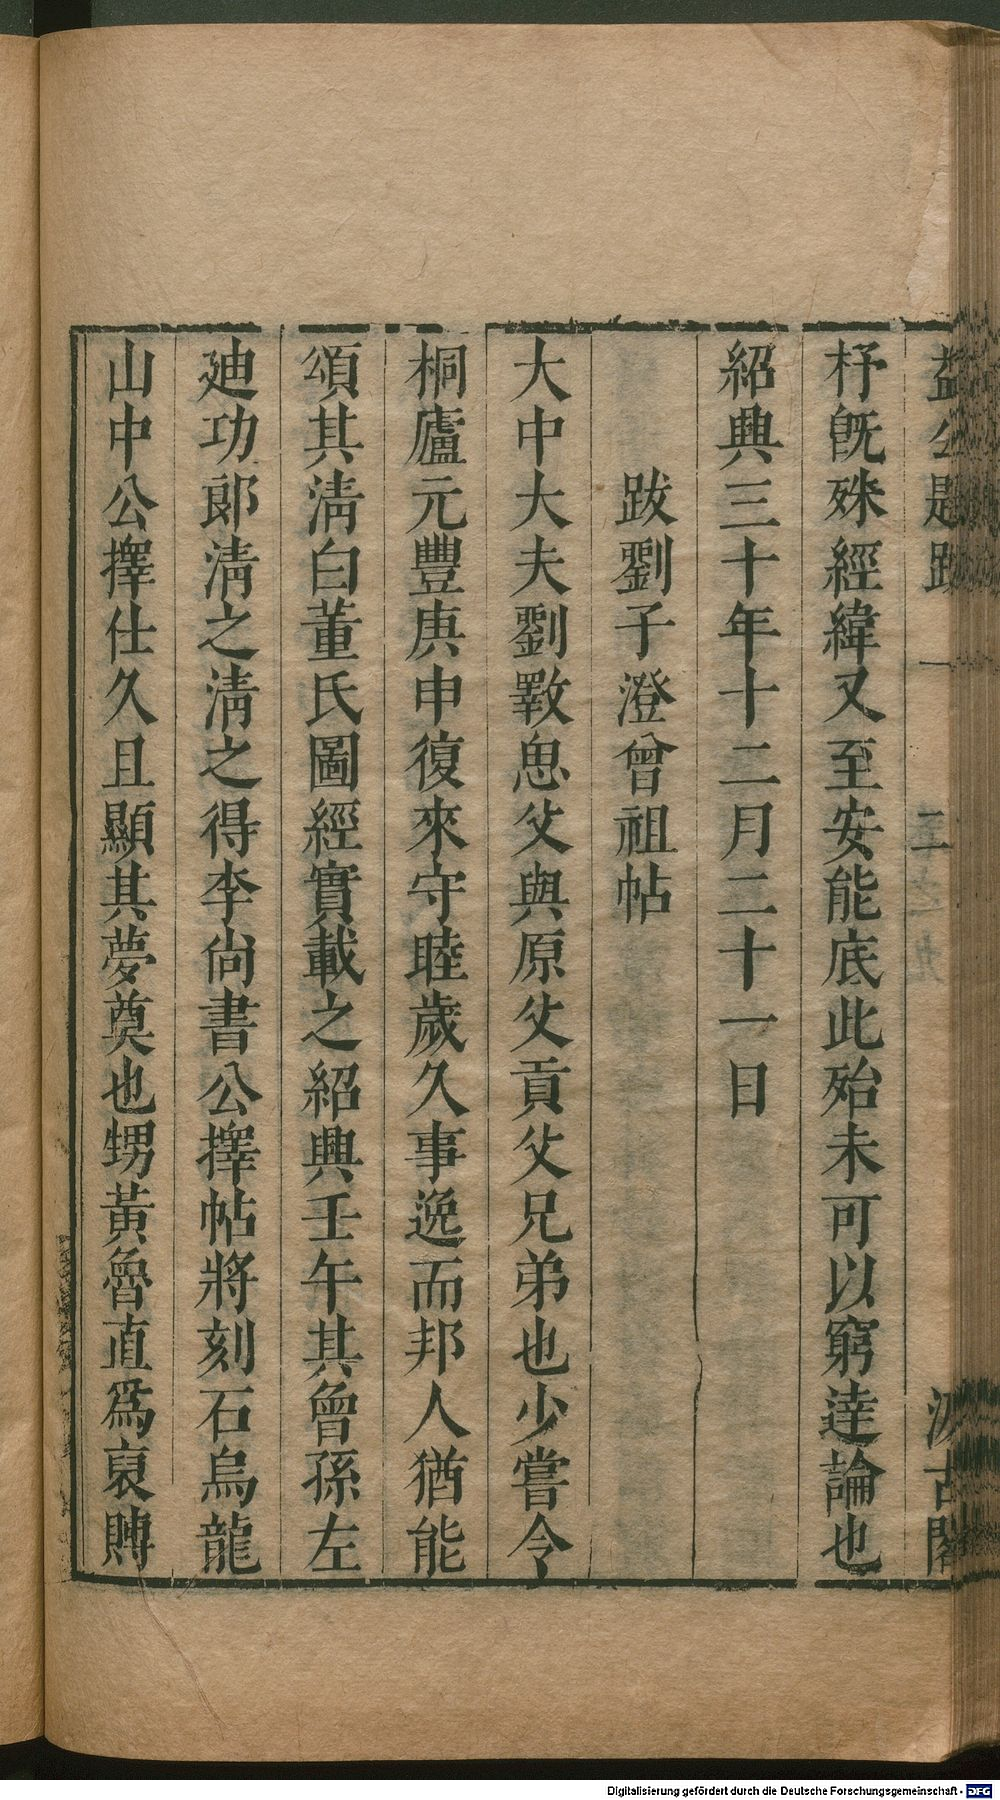 益公題跋 一 二 汲古閣
杼旣殊經緯又至安能底此殆未可以窮達論也
紹興三十年十二月二十一日
跋劉子澄曾祖帖
大中大夫劉斁思父與原父貢父兄弟也少嘗令
桐廬元豐庚申復來守睦歲久事逸而邦人猶能
頌其淸白董氏圖經實載之紹興壬午其曾孫左
廸功郞淸之淸之得李尙書公擇帖將刻石烏龍
山中公擇仕久且顯其夢奠也甥黃魯直爲裒賻
Digitalisierung gefördert durch die Deutsche Forschungsgemeinschaft - DFG